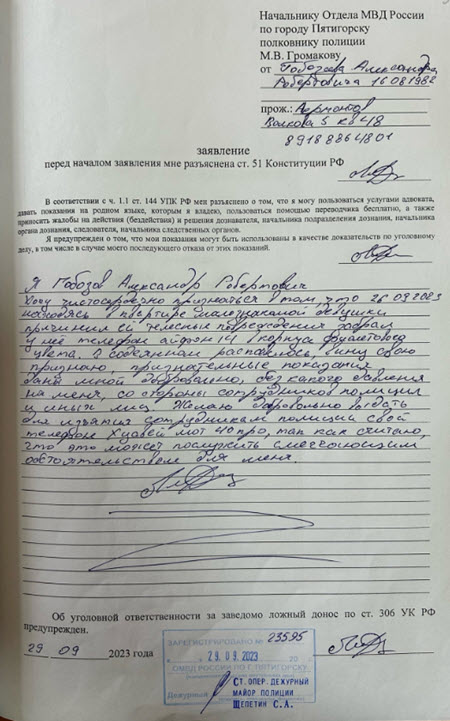 Начальнику Отдела МВД России
по городу Пятигорску
полковнику полиции
М.В. Громакову
от Гобозова Александра
Робертовича 16.08.1982
прож.:
8918886 4801
заявление
перед началом заявления мне разъяснена ст. 51 Конституции РФ
В соответствии с ч. 1.1 ст. 144 УПК РФ мен разъяснено о том, что я могу пользоваться услугами адвоката,
давать показания на родном языке, которым я владею, пользоваться помощью переводчика бесплатно, а также
приносить жалобы на действия (бездействия) и решения дознавателя, начальника подразделения дознания, начальника
органа дознания, следователя, начальника следственных органов.
Я предупрежден о том, что мои показания могут быть использованы в качестве доказательств по уголовному
делу, в том числе в случае моего последующего отказа от этих показаний.
Я Гобозов Александр Робертович
Хочу чистосердечно признаться в том, что 26.09.2023
находясь в квартире малознакомой девушки
причинил ей телесные повреждения забрал
у неё телефон айфон 14 в корпусе фиолетового
цвета. В содеянном раскаиваюсь, вину свою
признаю, признательные показания
даны мной добровольно, без какого давления
на меня, со стороны сотрудников полиции
и иных лиц. Желаю добровольно выдать
для изъятия сотрудниками полиции свой
телефон Хуавей 40 про, так как считаю,
что это может послужить смягчающим
обстоятельством для меня.
Об уголовной ответственности за заведомо ложный донос по ст. 306 УК РФ
предупрежден.
29 09 2023 года
ЗАРЕГИСТРИРОВАНО № 23595
29.09.2023
ОМВД РОССИИ ПО Г. ПЯТИГОРСКУ
Дежурный
СТ. ОПЕР. ДЕЖУРНЫЙ
МАЙОР ПОЛИЦИИ
ЩЕПЕТИН С.А.